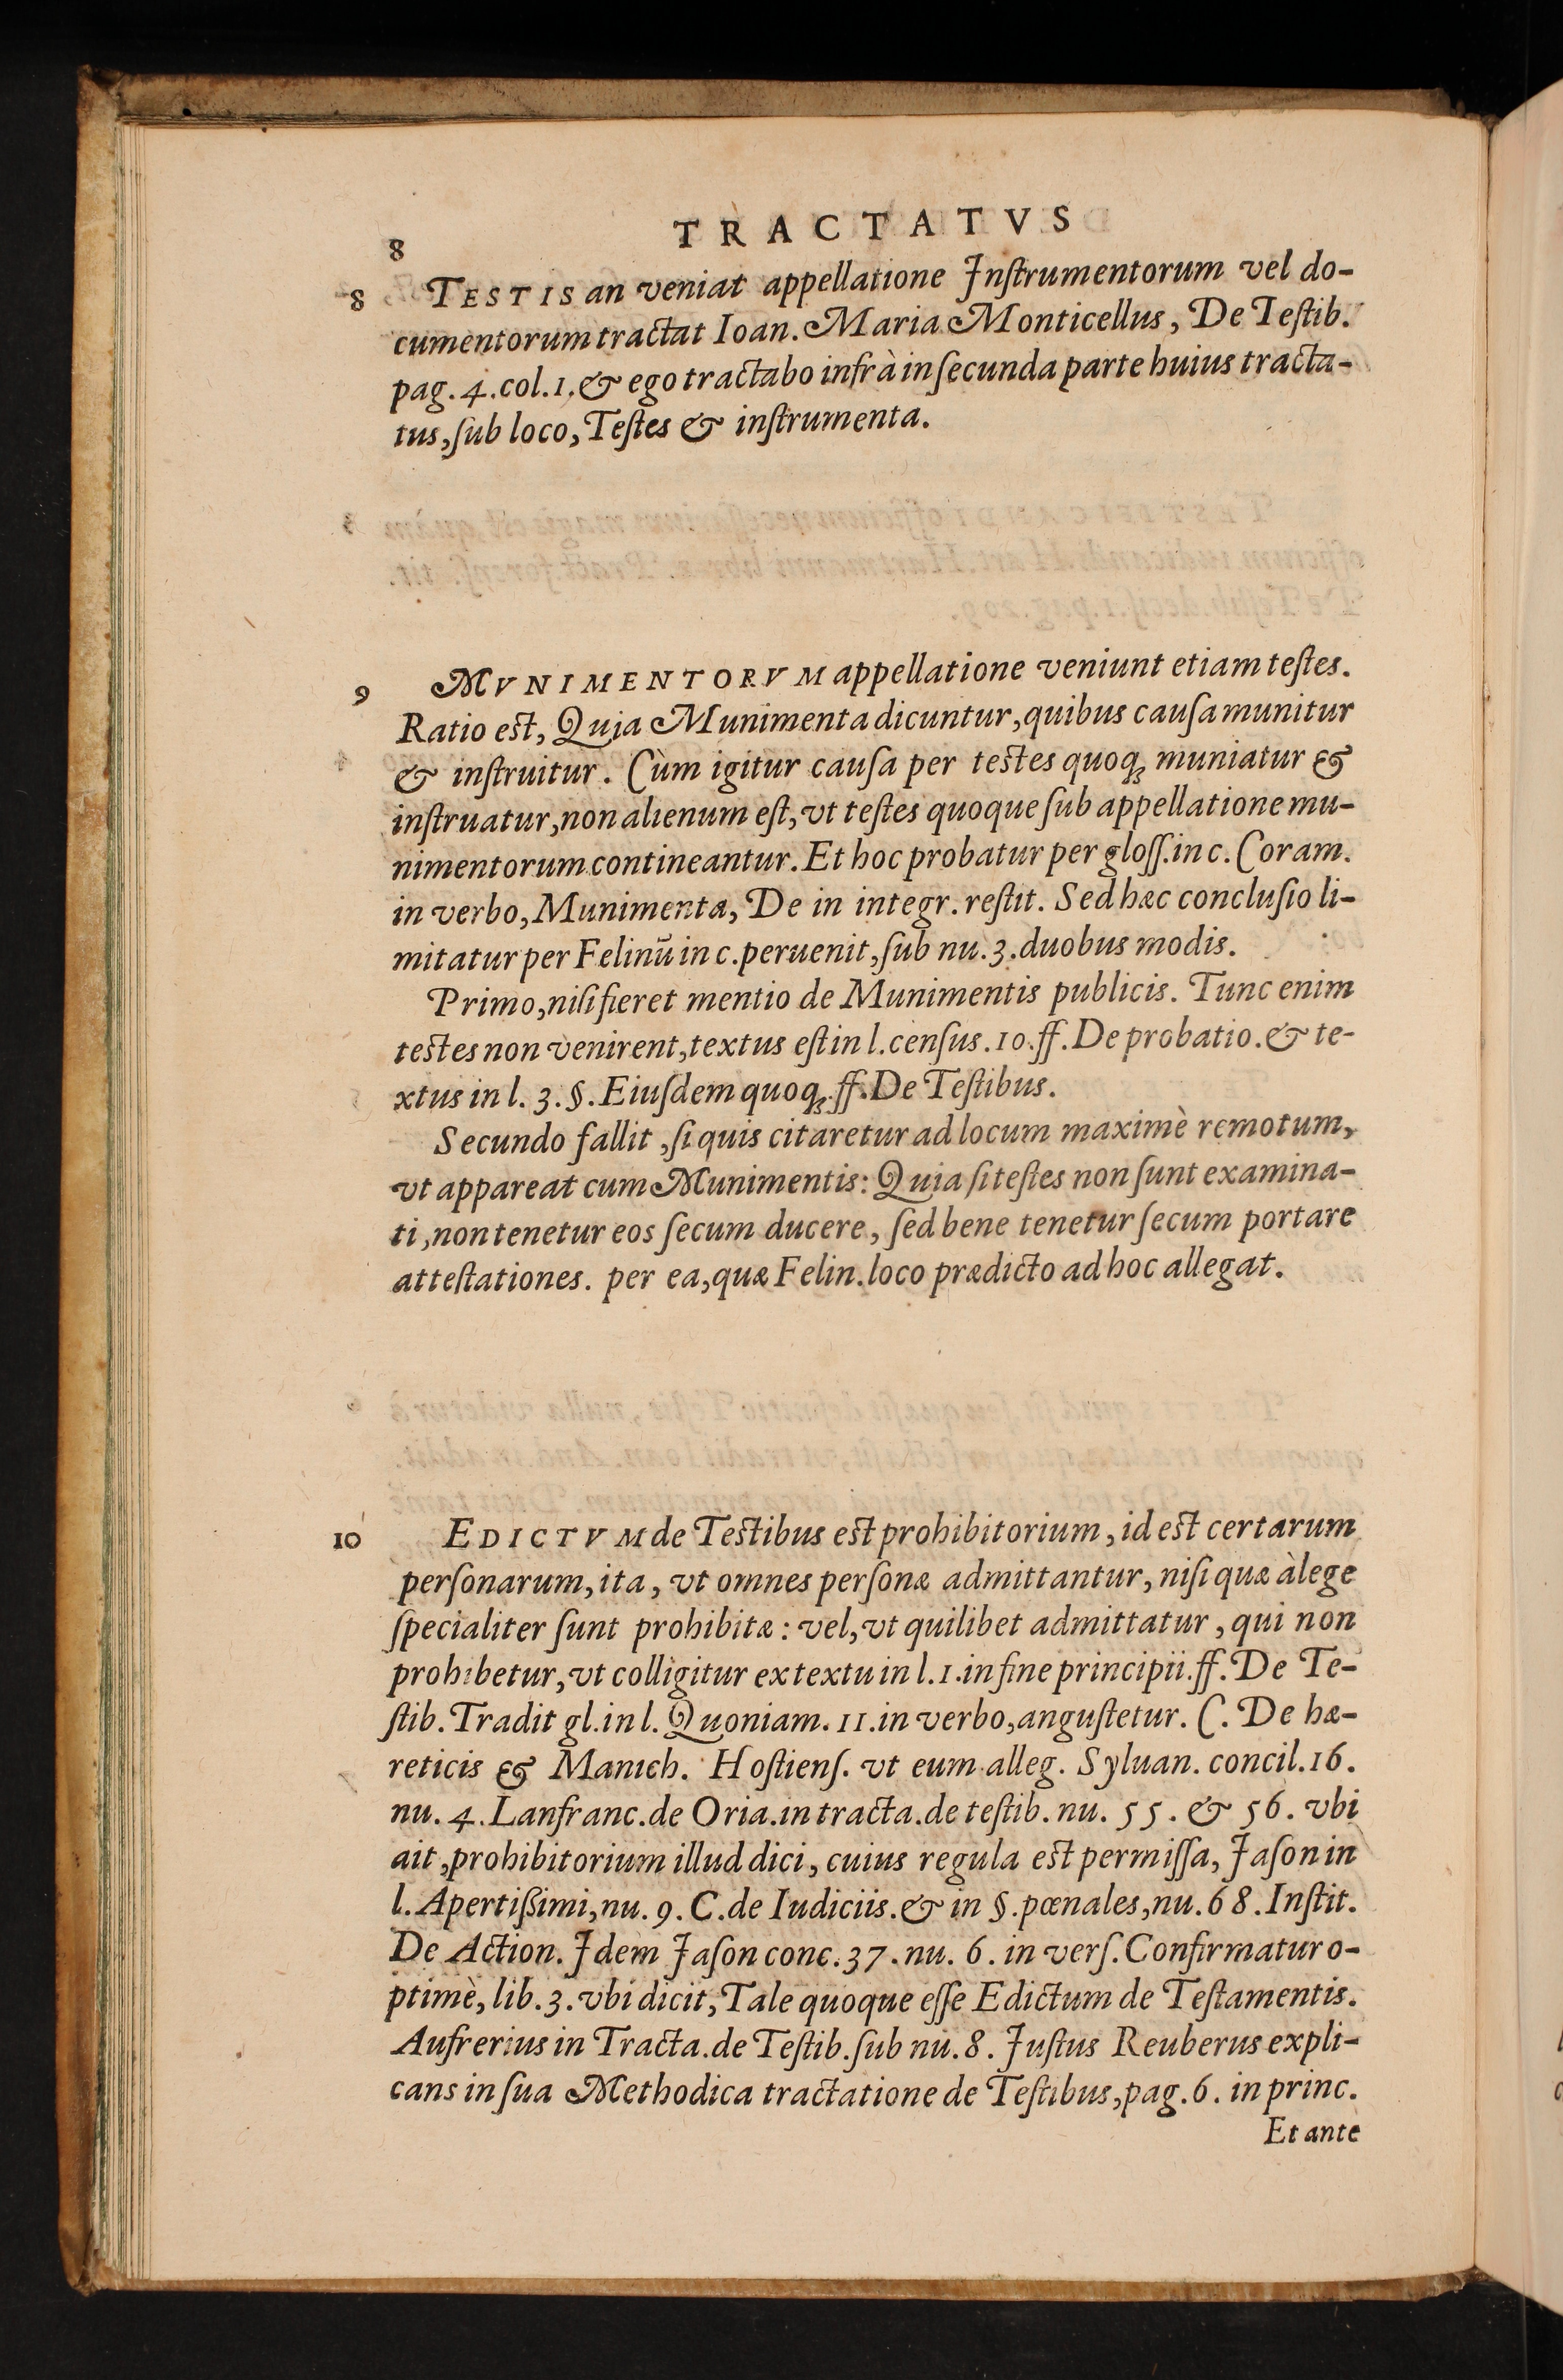 8 TRACTATVS
8 TESTIS an veniat appellatione Inſtrumentorum vel do-
cumentorum tractat Ioan. Maria Monticellus, De Teſtib.
pag. 4. col. 1. & ego tractabo infrà in ſecunda parte huius tracta-
tus, ſub loco, Teſtes & inſtrumenta.
9 MVNIMENTORVM appellatione veniunt etiam teſtes.
Ratio est, Quia Munimenta dicuntur, quibus cauſa munitur
& inſtruitur. Cùm igitur cauſa per testes quoq; muniatur &
inſtruatur, non alienum eſt, vt teſtes quoque ſub appellatione mu-
nimentorum contineantur. Et hoc probatur per gloſſ. in c. Coram.
in verbo, Munimenta, De in integr. reſtit. Sed hæc concluſio li-
mitatur per Felinū in c. peruenit, ſub nu. 3. duobus modis.
Primo, niſi fieret mentio de Munimentis publicis. Tunc enim
testes non venirent, textus eſt in l. cenſus. 10. ff. De probatio. & te-
xtus in l. 3. §. Eiuſdem quoq; ff. De Teſtibus.
Secundo fallit, ſi quis citaretur ad locum maximè remotum,
vt appareat cum Munimentis: Quia ſi teſtes non ſunt examina-
ti, non tenetur eos ſecum ducere, ſed bene tenetur ſecum portare
atteſtationes. per ea, quæ Felin. loco prædicto ad hoc allegat.
10 EDICTVM de Testibus est prohibitorium, id est certarum
perſonarum, ita, vt omnes perſonæ admittantur, niſi quæ à lege
ſpecialiter ſunt prohibitæ: vel, vt quilibet admittatur, qui non
prohibetur, vt colligitur ex textu in l. 1. in fine principii. ff. De Te-
ſtib. Tradit gl. in l. Quoniam. 11. in verbo, anguſtetur. C. De hæ-
reticis & Manich. Hoſtienſ. vt eum alleg. Syluan. concil. 16.
nu. 4. Lanfranc. de Oria. in tracta. de teſtib. nu. 55. & 56. vbi
ait, prohibitorium illud dici, cuius regula est permiſſa, Iaſon in
l. Apertißimi, nu. 9. C. de Iudiciis. & in §. pœnales, nu. 68. Inſtit.
De Action. Idem Iaſon conc. 37. nu. 6. in verſ. Confirmatur o-
ptimè, lib. 3. vbi dicit, Tale quoque eſſe Edictum de Teſtamentis.
Aufrerius in Tracta. de Teſtib. ſub nu. 8. Iuſtus Reuberus expli-
cans in ſua Methodica tractatione de Teſtibus, pag. 6. in princ.
Et ante